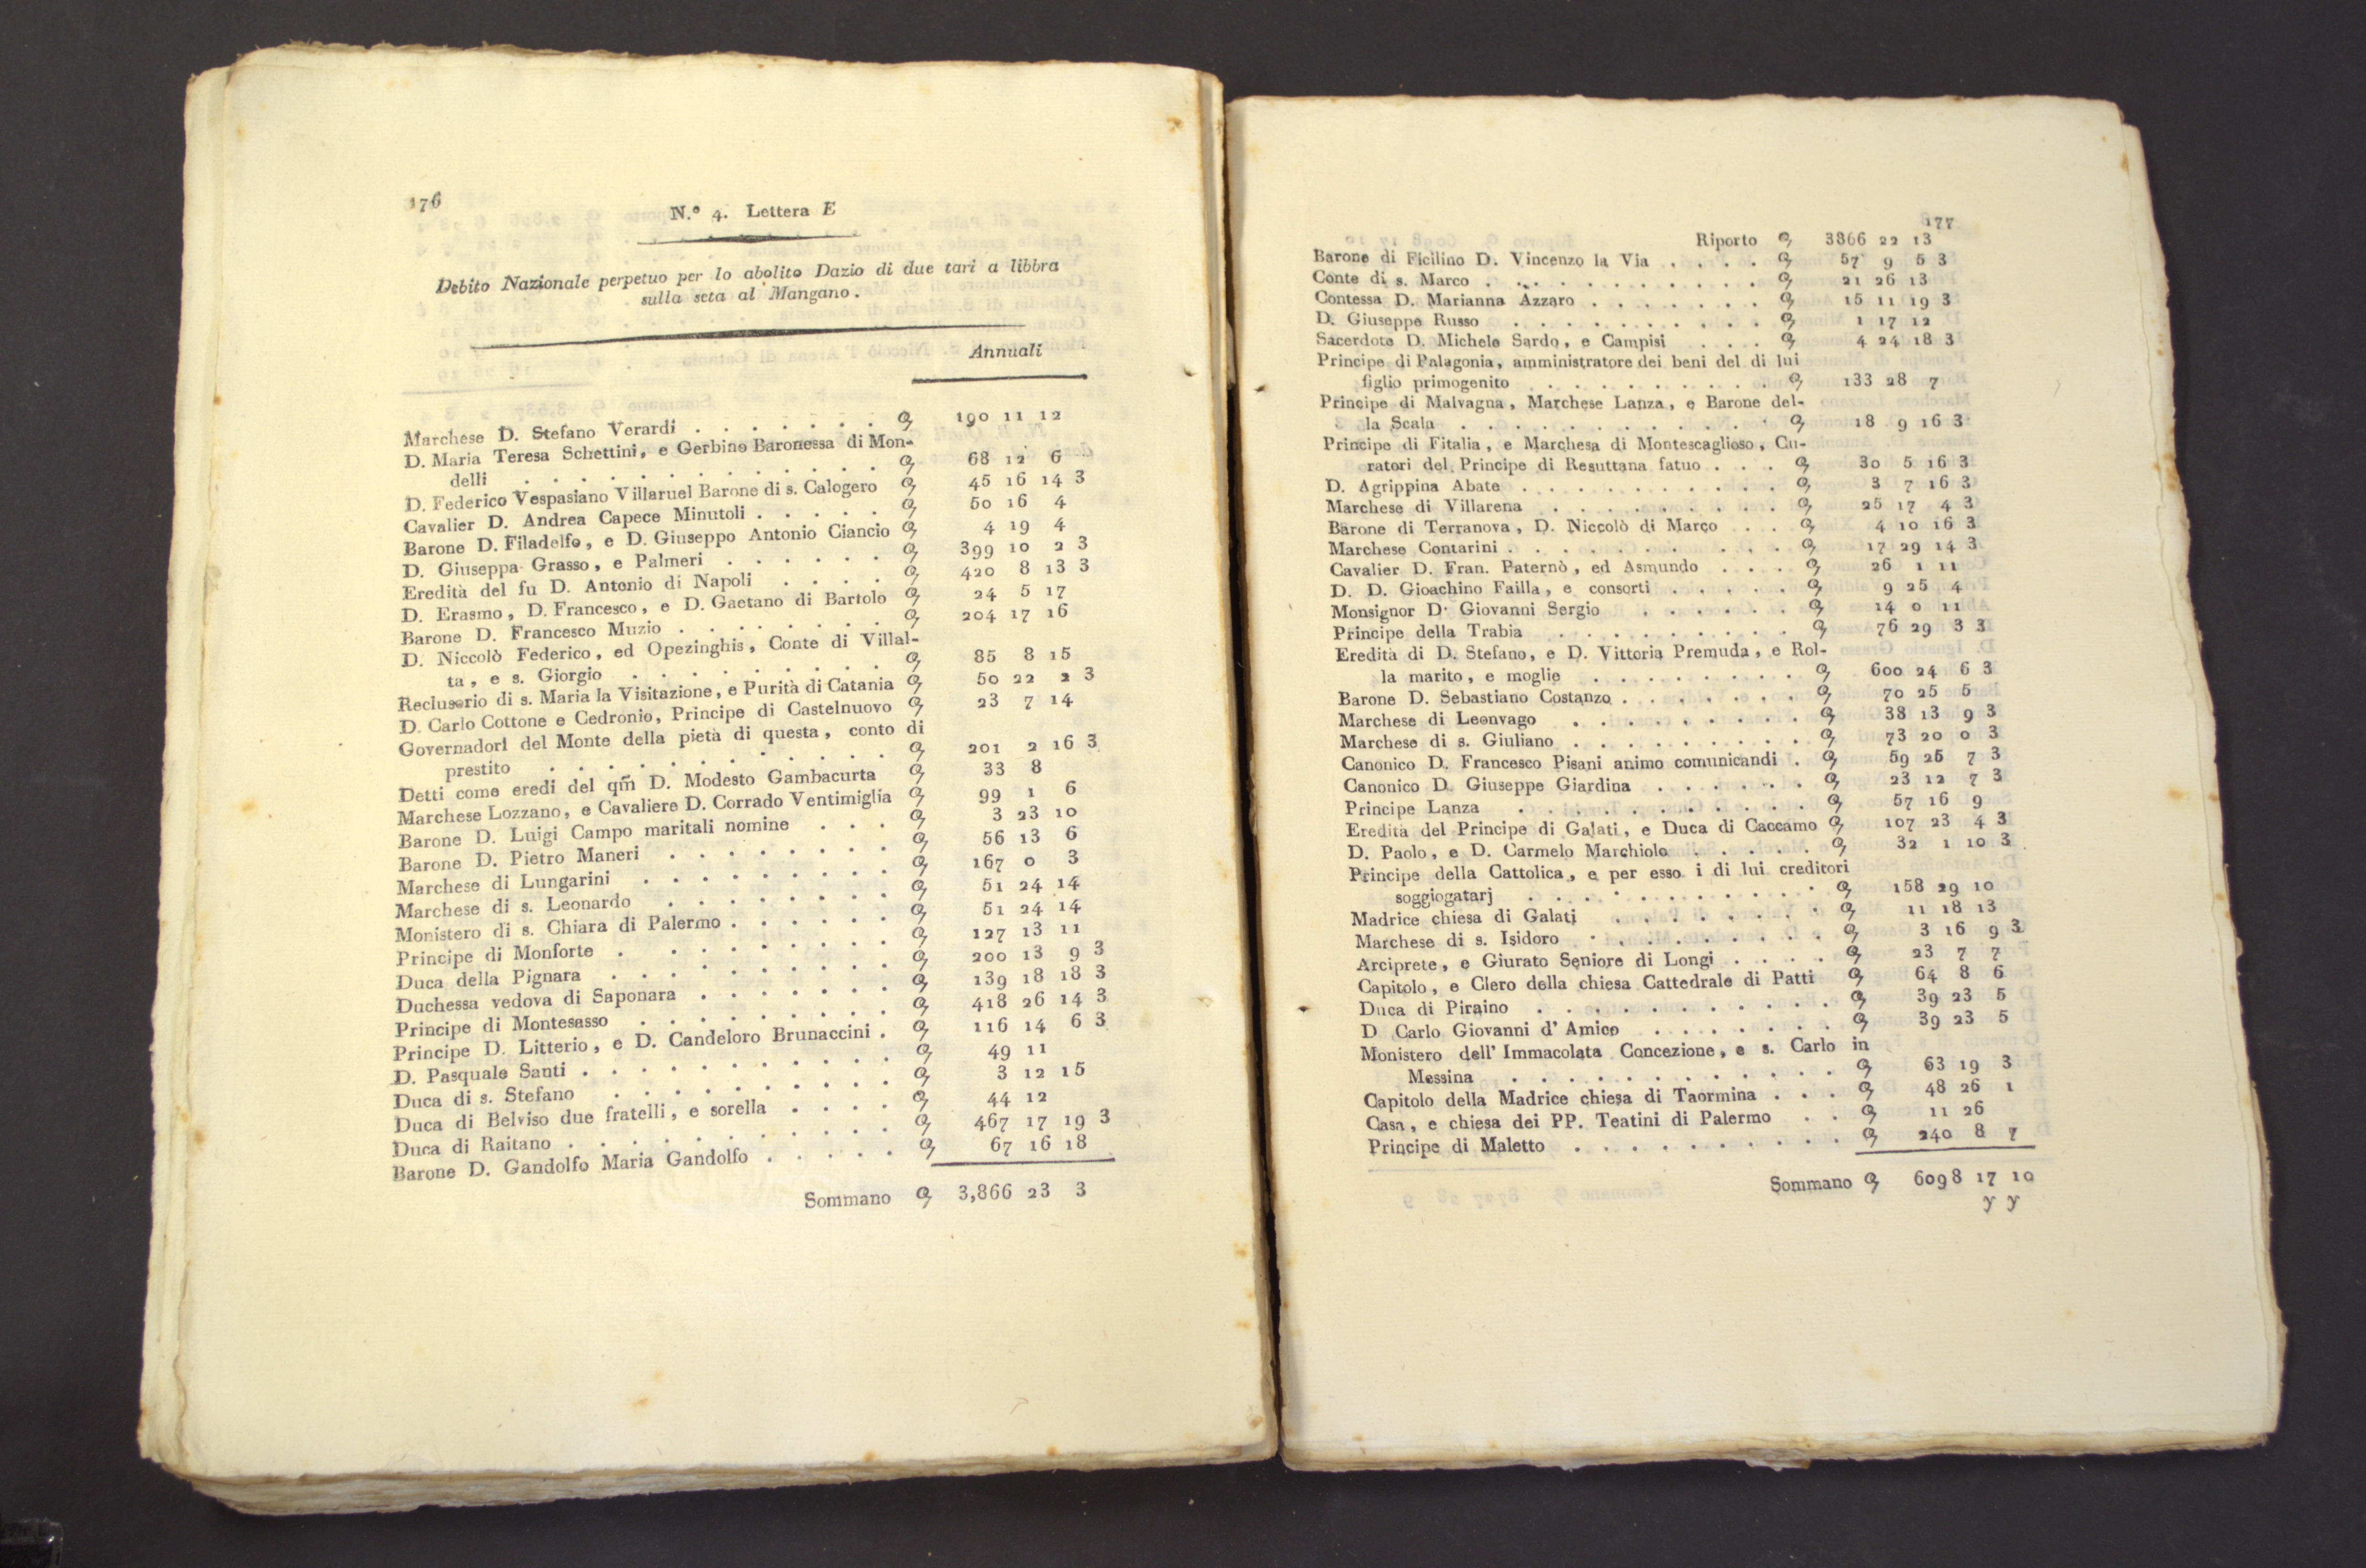 176
N.º 4. Lettera E
Debito Nazionale perpetuo per lo abolito Dazio di due tari a libbra
sulla seta al Mangano.
Annuali
Marchese D. Stefano Verardi . . . . . . . 190 11 12
D. Maria Teresa Schettini, e Gerbino Baronessa di Mon-
delli . . . . . . . . . . . . 68 12 6
D. Federico Vespasiano Villaruel Barone di s. Calogero 45 16 14 3
Cavalier D. Andrea Capece Minutoli . . . . . 50 16 4
Barone D. Filadelfo, e D. Giuseppo Antonio Ciancio 4 19 4
D. Giuseppa Grasso, e Palmeri . . . . . . 399 10 2 3
Eredità del fu D. Antonio di Napoli . . . . 420 8 13 3
D. Erasmo, D. Francesco, e D. Gaetano di Bartolo 24 5 17
Barone D. Francesco Muzio . . . . . . . 204 17 16
D. Niccolò Federico, ed Opezinghis, Conte di Villal-
ta, e s. Giorgio . . . . . . . . . 85 8 15
Reclusorio di s. Maria la Visitazione, e Purità di Catania 50 22 2 3
D. Carlo Cottone e Cedronio, Principe di Castelnuovo 23 7 14
Governadori del Monte della pietà di questa, conto di
prestito . . . . . . . . . . . 201 2 16 3
Detti come eredi del qm̃ D. Modesto Gambacurta 33 8
Marchese Lozzano, e Cavaliere D. Corrado Ventimiglia 99 1 6
Barone D. Luigi Campo maritali nomine . . . 3 23 10
Barone D. Pietro Maneri . . . . . . . . 56 13 6
Marchese di Lungarini . . . . . . . . . 167 0 3
Marchese di s. Leonardo . . . . . . . . 51 24 14
Monistero di s. Chiara di Palermo . . . . . . 51 24 14
Principe di Monforte . . . . . . . . . 127 13 11
Duca della Pignara . . . . . . . . . . 200 13 9 3
Duchessa vedova di Saponara . . . . . . . 139 18 18 3
Principe di Montesasso . . . . . . . . . 418 26 14 3
Principe D. Litterio, e D. Candeloro Brunaccini . 116 14 6 3
D. Pasquale Santi . . . . . . . . . . . 49 11
Duca di s. Stefano . . . . . . . . . . 3 12 15
Duca di Belviso due fratelli, e sorella . . . . 44 12
Duca di Raitano . . . . . . . . . . . 467 17 19 3
Barone D. Gandolfo Maria Gandolfo . . . . . 67 16 18
Sommano 3,866 23 3
177
Riporto 3866 22 13
Barone di Ficilino D. Vincenzo la Via . . . . 57 9 5 3
Conte di s. Marco . . . . . . . . . . . 21 26 13
Contessa D. Marianna Azzaro . . . . . . . 15 11 19 3
D. Giuseppe Russo . . . . . . . . . . 1 17 12
Sacerdote D. Michele Sardo, e Campisi . . . 4 24 18 3
Principe di Palagonia, amministratore dei beni del di lui
figlio primogenito . . . . . . . . . 133 28 7
Principe di Malvagna, Marchese Lanza, e Barone del-
la Scala . . . . . . . . . . . . 18 9 16 3
Principe di Fitalia, e Marchesa di Montescaglioso, Cu-
ratori del Principe di Resuttana fatuo . . . 30 5 16 3
D. Agrippina Abate . . . . . . . . . . 3 7 16 3
Marchese di Villarena . . . . . . . . . 25 17 4 3
Barone di Terranova, D. Niccolò di Marco . . 4 10 16 3
Marchese Contarini . . . . . . . . . . . 17 29 14 3
Cavalier D. Fran. Paternò, ed Asmundo . . . 26 1 11
D. D. Gioachino Failla, e consorti . . . . . 9 25 4
Monsignor D. Giovanni Sergio . . . . . . 14 0 11
Principe della Trabia . . . . . . . . . 76 29 3 3
Eredità di D. Stefano, e D. Vittoria Premuda, e Rol-
la marito, e moglie . . . . . . . . . 600 24 6 3
Barone D. Sebastiano Costanzo . . . . . . . 70 25 5
Marchese di Leonvago . . . . . . . . . 38 13 9 3
Marchese di s. Giuliano . . . . . . . . . 73 20 0 3
Canonico D. Francesco Pisani animo comunicandi . 59 25 7 3
Canonico D. Giuseppe Giardina . . . . . . 23 12 7 3
Principe Lanza . . . . . . . . . . . 57 16 9
Eredità del Principe di Galati, e Duca di Caccamo 107 23 4 3
D. Paolo, e D. Carmelo Marchiolo . . . . . 32 1 10 3
Principe della Cattolica, e per esso i di lui creditori
soggiogatarj . . . . . . . . . . . 158 29 10
Madrice chiesa di Galati . . . . . . . . 11 18 13
Marchese di s. Isidoro . . . . . . . . . 3 16 9 3
Arciprete, e Giurato Seniore di Longi . . . . 23 7 7
Capitolo, e Clero della chiesa Cattedrale di Patti 64 8 6
Duca di Piraino . . . . . . . . . . . 39 23 5
D Carlo Giovanni d' Amico . . . . . . . 39 23 5
Monistero dell' Immacolata Concezione, e s. Carlo in
Messina . . . . . . . . . . . . 63 19 3
Capitolo della Madrice chiesa di Taormina . . . 48 26 1
Casa, e chiesa dei PP. Teatini di Palermo . . 11 26
Principe di Maletto . . . . . . . . . . 240 8 7
Sommano 6098 17 10
y y